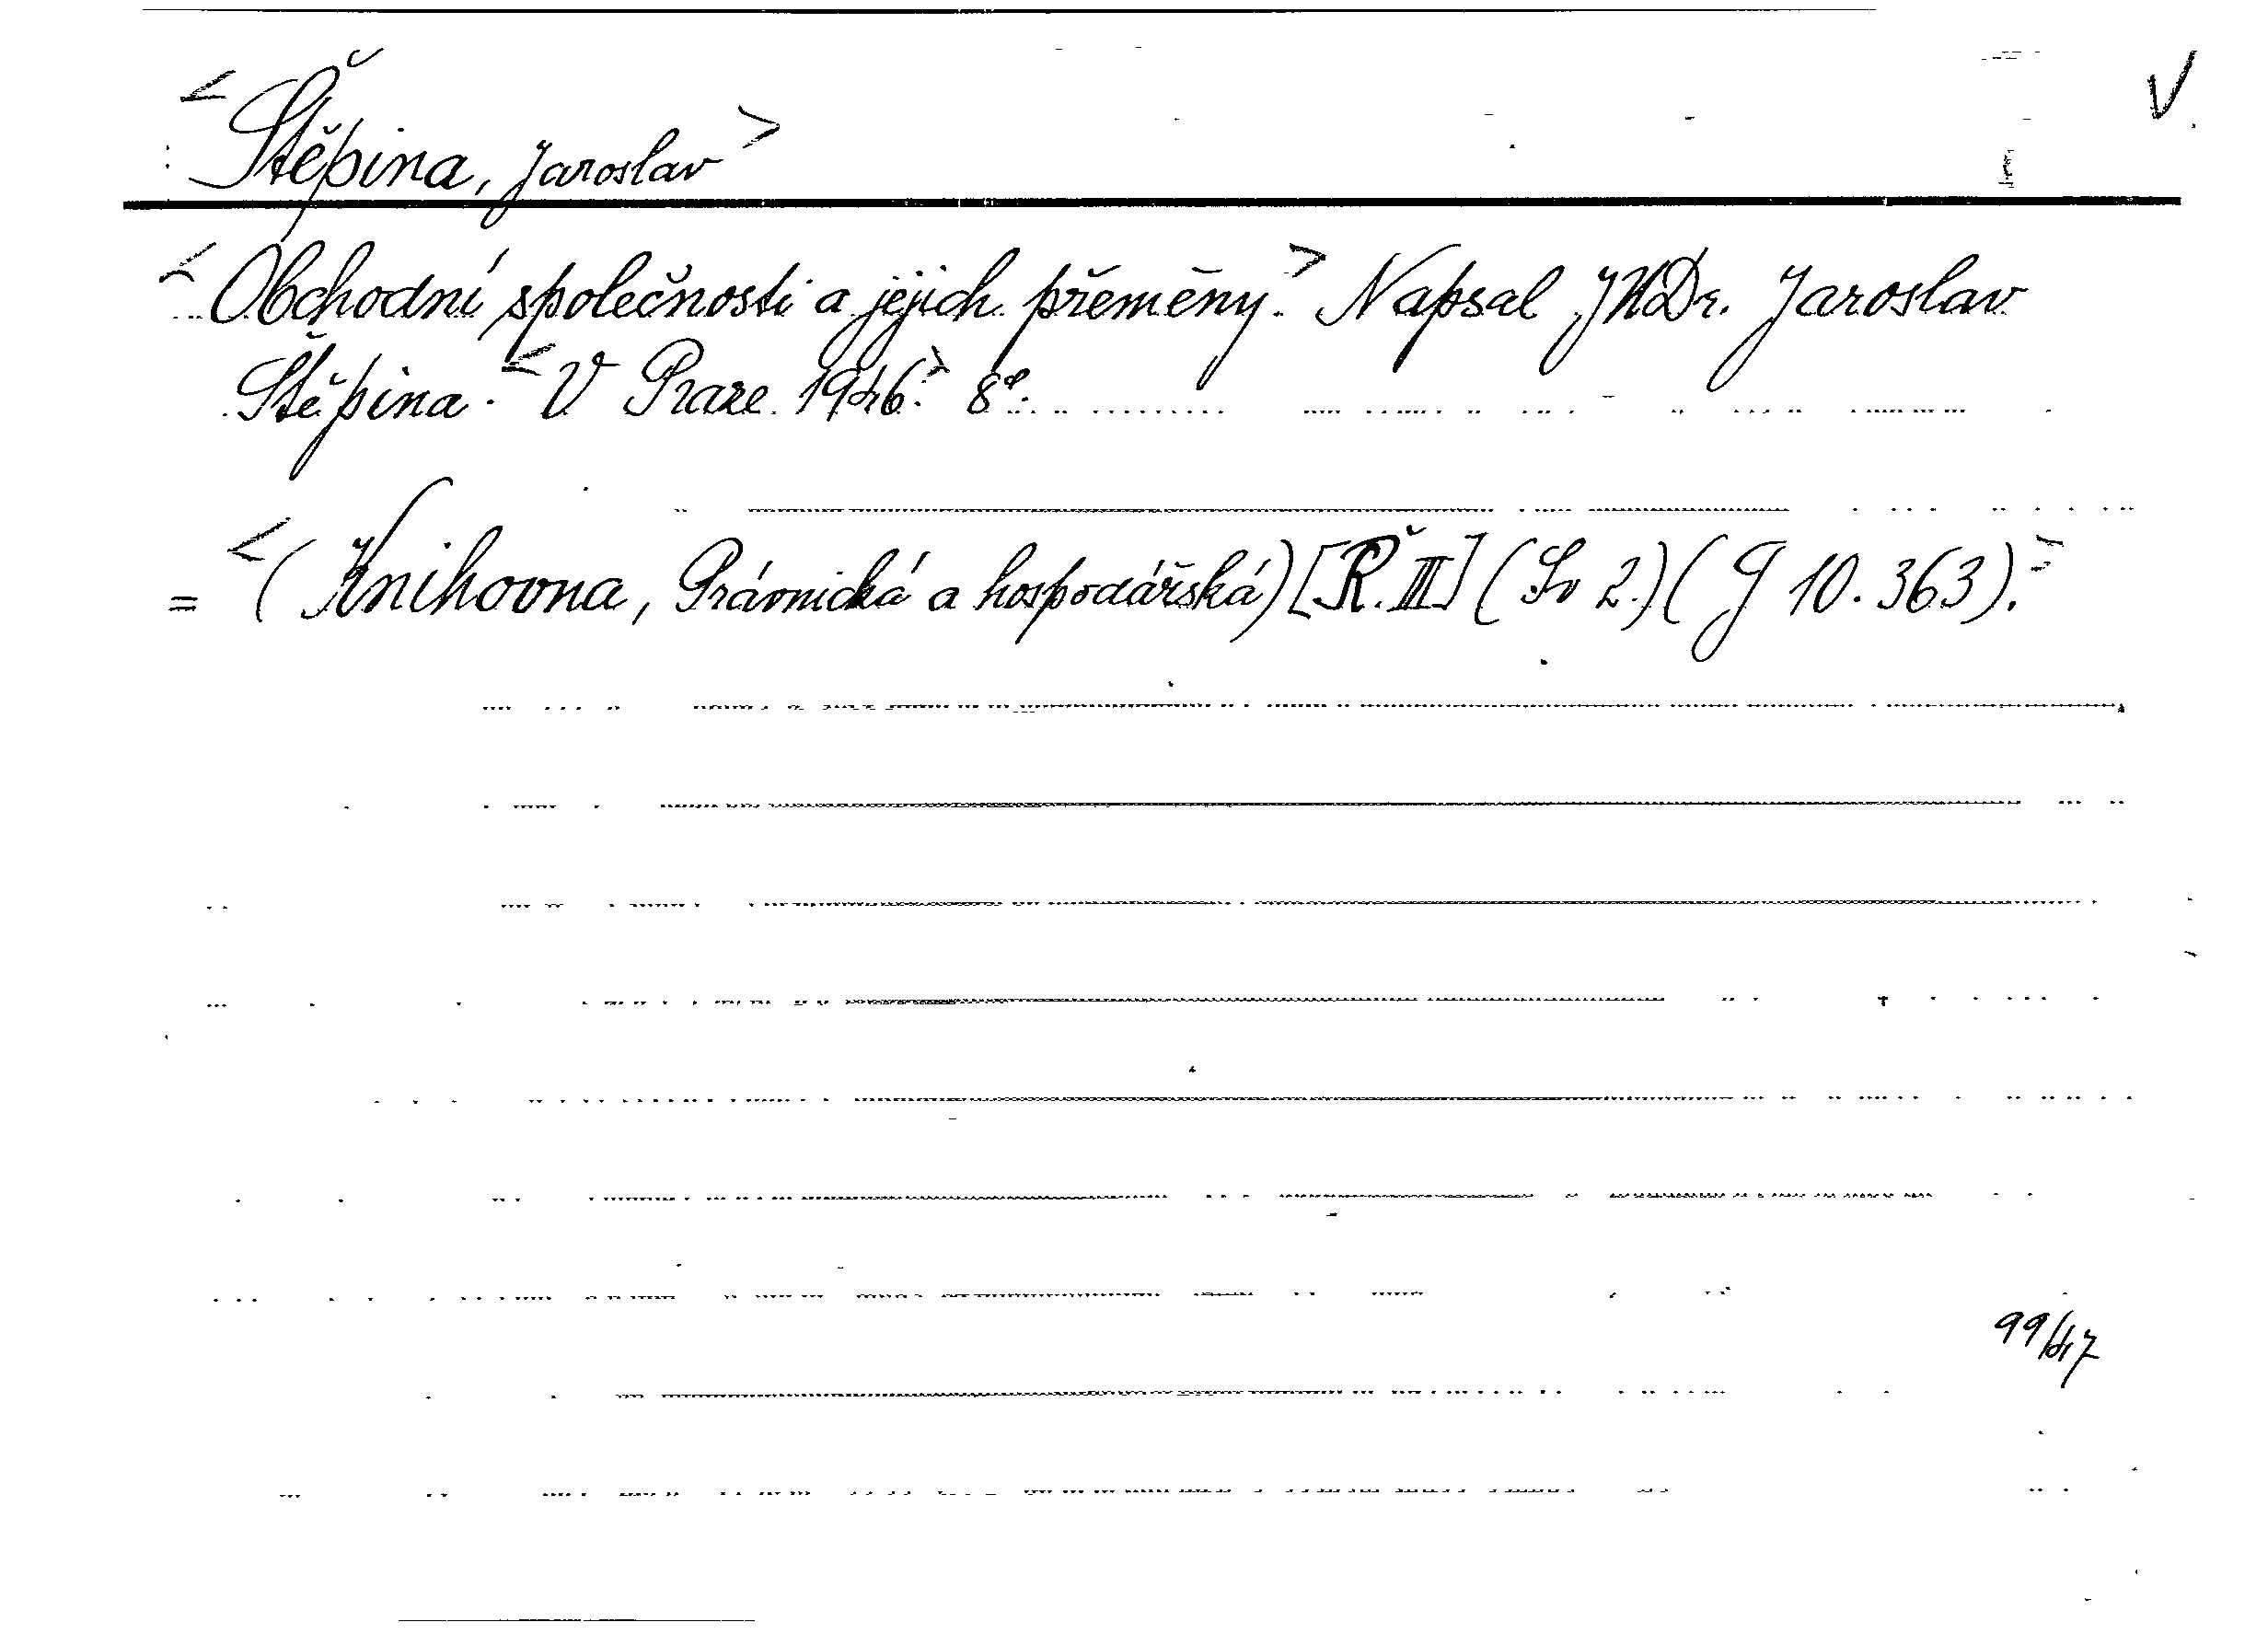 <Štěpina, Jaroslav> V
<Obchodní společnosti a jejich přeměny.> Napsal JUDr. Jaroslav
Štěpina. <V Praze 1946.> 8°.
= <(Knihovna, Právnická a hospodářská) [Ř. III] (Sv 2.) (G 10.363).>
99/47